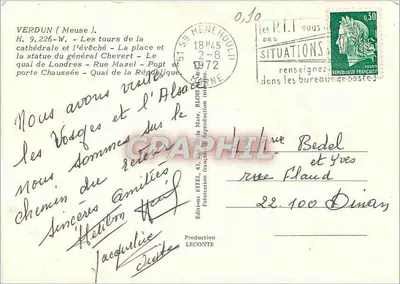 VERDUN ( Meuse ).
H. 9.226-W. - Les tours de la
cathédrale et l'évêché - La place et
la statue du général Chevert - Le
quai de Londres - Rue Mazel - Pont et
porte Chaussée - Quai de la République
Nous avons visité
les Vosges et l'Alsace
nous sommes sur le
chemin du retour
sincères amitiés
Jacqueline
0,30
51 Ste MENEHOULD
18H45
2-8
1972
MARNE
les P.T.T vous
DES
SITUATIONS
renseignez
dans les bureaux de poste
0,30
REPUBLIQUE FRANCAISE
Bedel
et Yves
rue
22.100 Dinan
Editions ESTEL
Production
LECONTE
CPAPHIL